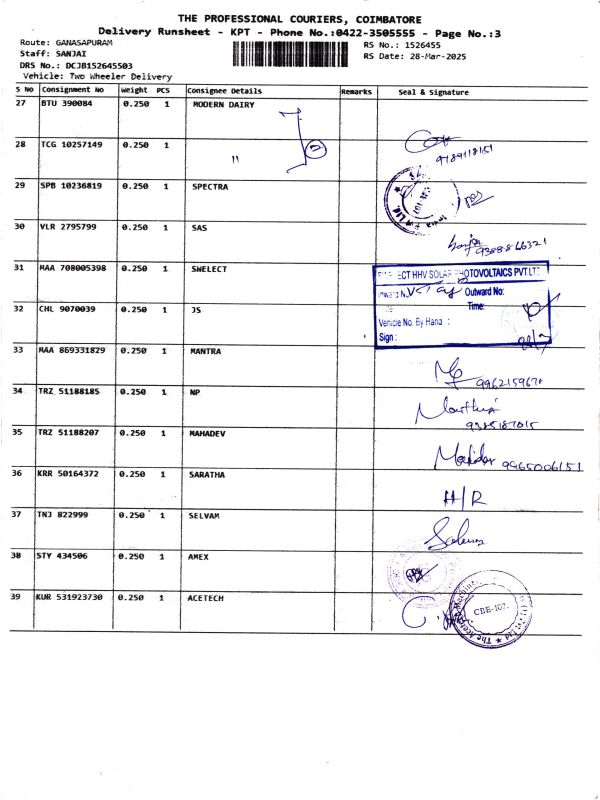 THE PROFESSIONAL COURIERS, COIMBATORE
Delivery Runsheet - KPT - Phone No.:0422-3505555 - Page No.:3
Route: GANASAPURAM
Staff: SANJAI
DRS No.: DCJB152645503
Vehicle: Two Wheeler Delivery
RS No.: 1526455
RS Date: 28-Mar-2025
S No Consignment No Weight PCS Consignee Details Remarks Seal & Signature
27 BTU 390084 0.250 1 MODERN DAIRY
28 TCG 10257149 0.250 1 " 2
9789118151
29 SPB 10236819 0.250 1 SPECTRA
30 VLR 2795799 0.250 1 SAS
9388866321
31 MAA 708005398 0.250 1 SWELECT
ECT HHV SOLAR PHOTOVOLTAICS PVT LTD
Outward No:
Time:
Vehicle No. By Hand :
Sign :
32 CHL 9070039 0.250 1 JS
33 MAA 869331829 0.250 1 MANTRA
34 TRZ 51188185 0.250 1 NP
9385187015
35 TRZ 51188207 0.250 1 MAHADEV
9965006151
36 KRR 50164372 0.250 1 SARATHA
H/R
37 TNJ 822999 0.250 1 SELVAM
38 STY 434506 0.250 1 AMEX
39 KUR 531923730 0.250 1 ACETECH
CBE-107.